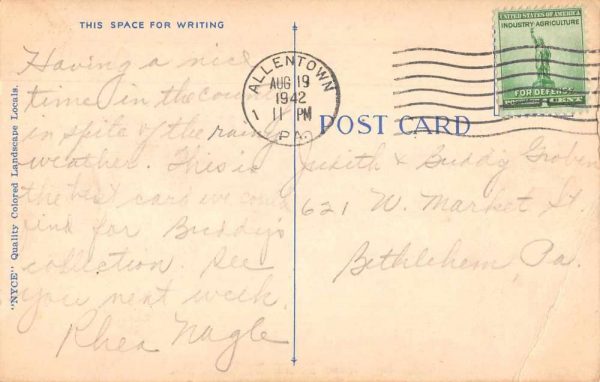 THIS SPACE FOR WRITING
Having a nice
time in the country
in spite of the rainy
weather. This is
the best card we could
find for Buddy's
collection. See
you next week.
Rhea Nagle
"NYCE" Quality Colored Landscape Locals.
ALLENTOWN
AUG 19
1942
1 11 PM
PA
UNITED STATES OF AMERICA
INDUSTRY AGRICULTURE
FOR DEFENSE
1 CENT
POST CARD
Judith & Buddy
621 W. Market St.
Bethlehem, Pa.